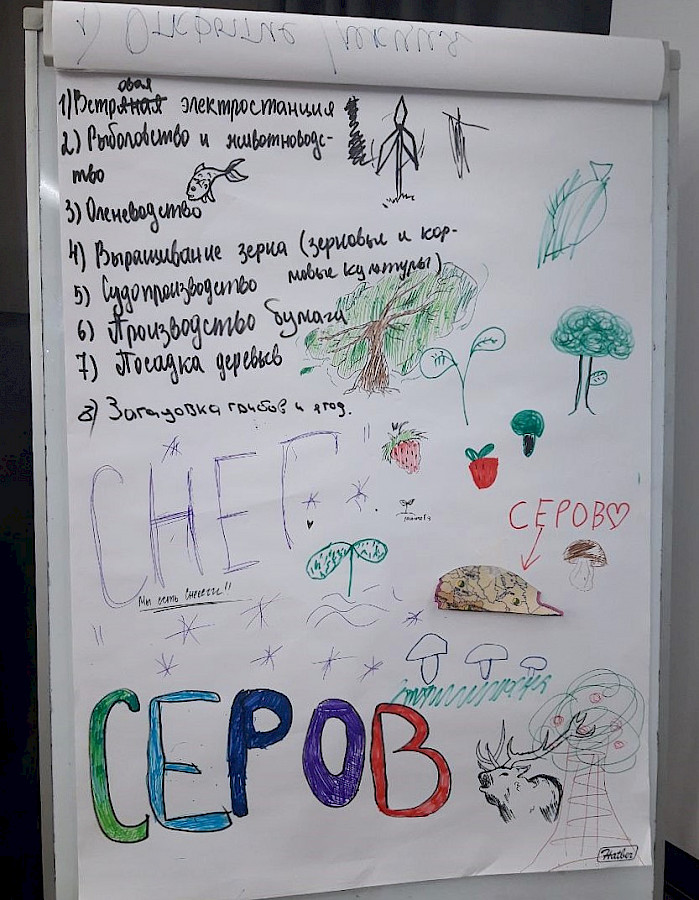 1) Открытие
овая
1) Ветряная электростанция
2) Рыболовство и животноводс-
тво
3) Оленеводство
4) Выращивание зерна (зерновые и кор-
мовые культуры)
5) Судопроизводство
6) Производство бумага
7) Посадка деревьев
8) Заготовка грибов и ягод.
СНЕГ
СЕРОВ♡
Мы есть
СЕРОВ
Hatber